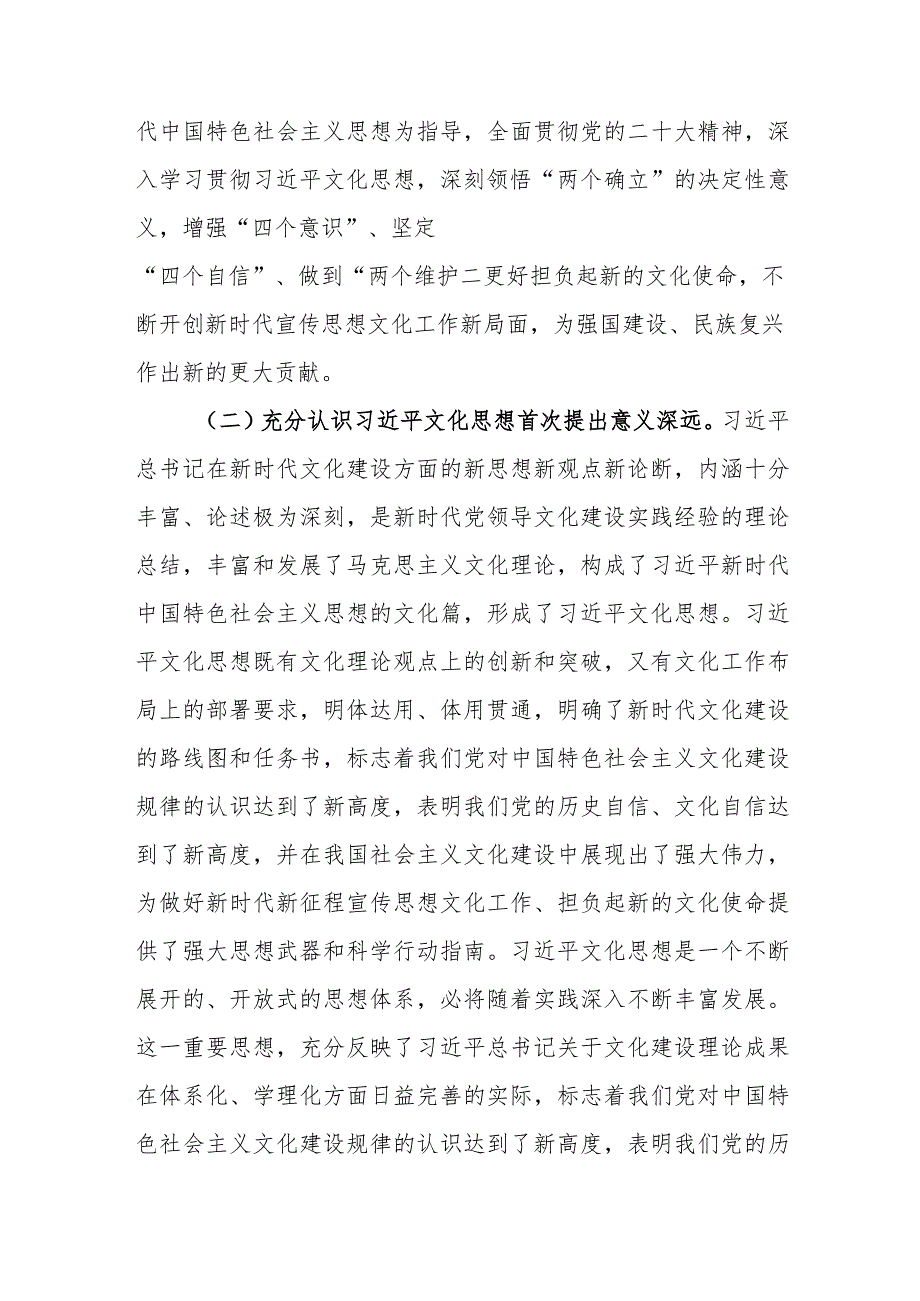 代中国特色社会主义思想为指导，全面贯彻党的二十大精神，深
入学习贯彻习近平文化思想，深刻领悟“两个确立”的决定性意
义，增强“四个意识”、坚定
“四个自信”、做到“两个维护二更好担负起新的文化使命，不
断开创新时代宣传思想文化工作新局面，为强国建设、民族复兴
作出新的更大贡献。
（二）充分认识习近平文化思想首次提出意义深远。习近平
总书记在新时代文化建设方面的新思想新观点新论断，内涵十分
丰富、论述极为深刻，是新时代党领导文化建设实践经验的理论
总结，丰富和发展了马克思主义文化理论，构成了习近平新时代
中国特色社会主义思想的文化篇，形成了习近平文化思想。习近
平文化思想既有文化理论观点上的创新和突破，又有文化工作布
局上的部署要求，明体达用、体用贯通，明确了新时代文化建设
的路线图和任务书，标志着我们党对中国特色社会主义文化建设
规律的认识达到了新高度，表明我们党的历史自信、文化自信达
到了新高度，并在我国社会主义文化建设中展现出了强大伟力，
为做好新时代新征程宣传思想文化工作、担负起新的文化使命提
供了强大思想武器和科学行动指南。习近平文化思想是一个不断
展开的、开放式的思想体系，必将随着实践深入不断丰富发展。
这一重要思想，充分反映了习近平总书记关于文化建设理论成果
在体系化、学理化方面日益完善的实际，标志着我们党对中国特
色社会主义文化建设规律的认识达到了新高度，表明我们党的历